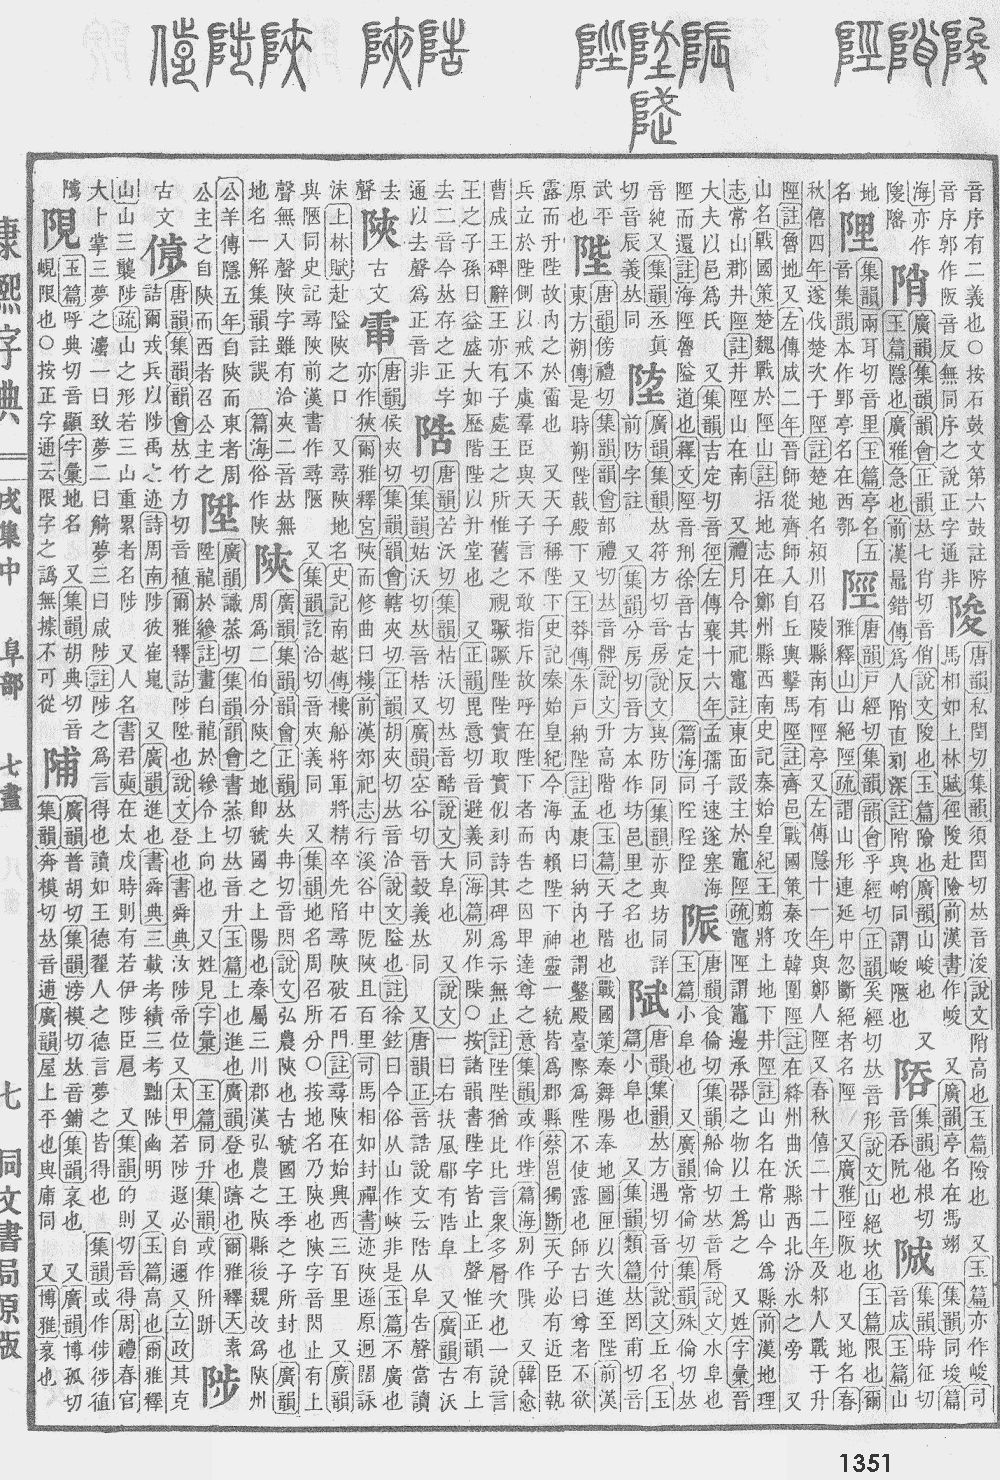 音序有二義也○按石鼓文第六鼓註
音序郭作阪音反無同序之說正字通非
陖
唐韻私閏切集韻須閏切音浚說文陗高也玉篇險也廣韻亭名在馮翊又玉篇亦作峻司
馬相如上林賦徑陵赴險前漢書作峻
陗
廣韻集韻韻會正韻𠀤七肖切音俏說文陵也玉篇險也廣韻山峻也又
玉篇隱也廣雅急也前漢鼂錯傳爲人陗直刻深註陗與峭同謂峻陿也
集韻他根切
音吞阬也
郕
集韻時征切
音成玉篇山
地
名
集韻兩耳切音里玉篇亭名五
音集韻本作郢亭名在西鄂
陘
唐韻戸經切集韻韻會乎經切正韻奚經切𠀤音形說文山絕坎也玉篇限也爾
雅釋山山絕陘疏謂山形連延中忽斷絕者名陘又廣雅陘阪也又地名春
秋僖四年遂伐楚次于陘註楚地名潁川召陵縣南有陘亭又左傳隱十一年與鄭人陘又春秋僖二十二年及邾人戰于升
陘註魯地又左傳成二年晉師從齊師入自丘輿擊馬陘註齊邑戰國策秦攻韓圍陘註在絳州曲沃縣西北汾水之旁又
山名戰國策楚魏戰於陘山註括地志在鄭州縣西南史記秦始皇紀王翦將上地下井陘註山名在常山今爲縣前漢地理
志常山郡井陘註井陘山在南又禮月令其祀竈註東面設主於竈陘疏竈陘謂竈邊承器之物以土爲之又姓字彙晉
大夫以邑爲氏又集韻吉定切音徑左傳襄十六年孟孺子速遂塞海
陘而還註海陘魯隘道也釋文陘音刑徐音古定反
陙
唐韻食倫切集韻船倫切𠀤音脣說文水阜也
玉篇小阜也又廣韻常倫切集韻殊倫切𠀤
音純又集韻丞眞
切音辰義𠀤同
廣韻集韻𠀤符方切音房說文與防同集韻亦與坊同詳
前防字註又集韻分房切音方本作坊邑里之名也
陚
唐韻集韻𠀤方遇切音付說文丘名玉
篇小阜也又集韻類篇𠀤罔甫切音
武平
原也
陛
唐韻傍禮切集韻韻會部禮切𠀤音髀說文升高階也玉篇天子階也戰國策秦舞陽奉地圖匣以次進至陛前漢
東方朔傳是時朔陛戟殿下又王莽傳朱戸納陛註孟康曰納內也謂鑿殿基際爲陛不使露也師古曰尊者不欲
露而升陛故內之於霤也又天子稱陛下史記秦始皇紀今海內賴陛下神靈一統皆爲郡縣蔡邕獨斷天子必有近臣執
兵立於陛側以戒不虞羣臣與天子言不敢指斥故呼在陛下者而告之因卑達尊之意集韻或作𨺩篇海別作𨺩又韓愈
曹成王碑辭王亦有子處王之所惟舊之視蹶蹶陛陛實取實似刻詩其碑爲示無止註陛陛猶比比言衆多層次也一說言
王之子孫日益盛大如歷階陛以升堂也又正韻毘意切音避義同海篇別作𨺩○按諸韻書陛字皆止上聲惟正韻有上
去二音今𠀤存之正字
通以去聲爲正音非
陪
唐韻苦沃切集韻枯沃切𠀤音酷說文大阜也又說文一曰右扶風郿有陪阜又廣韻古沃
切集韻姑沃切𠀤音梏又廣韻空谷切音穀義𠀤同又唐韻正音誥說文云陪从阜告聲當讀
去
聲
陜
古文
唐韻侯夾切集韻韻會轄夾切正韻胡夾切𠀤音洽說文隘也註徐鉉曰今俗从山作峽非是玉篇不廣也
亦作狹爾雅釋宮陜而修曲曰樓前漢郊祀志行溪谷中陀陜且百里司馬相如封禪書迹陜遜原迥闊詠
沬上林賦赴隘陜之口又尋陜地名史記南越傳樓船將軍將精卒先陷尋陜破石門註尋陜在始興西三百里又廣韻
與陿同史記尋陜前漢書作尋陿又集韻訖洽切音夾義同又集韻地名周召所分○按地名乃陝也陜字音閃止有上
聲無入聲陜字雖有洽夾二音𠀤無
地名一解集韻註誤篇海俗作陕
陝
廣韻集韻韻會正韻𠀤失冉切音閃說文弘農陝也古虢國王季之子所封也廣韻
周爲二伯分陝之地卽虢國之上陽也秦屬三川郡漢弘農之陝縣後魏改爲陝州
公羊傳隱五年自陝而東者周
公主之自陝而西者召公主之
陞
廣韻識蒸切集韻韻會書蒸切𠀤音升玉篇上也進也廣韻登也躋也爾雅釋天素
陞龍於縿註畫白龍於縿令上向也又姓見字彙玉篇同升集韻或作阩䟫
陟
古文
唐韻集韻韻會𠀤竹力切音稙爾雅釋詁陟陞也說文登也書舜典汝陟帝位又太甲若陟遐必自邇又立政其克
詰爾戎兵以陟禹之迹詩周南陟彼崔嵬又廣韻進也書舜典三載考績三考黜陟幽明又玉篇高也爾雅釋
山山三襲陟疏山之形若三山重累者名陟又人名書君奭在太戊時則有若伊陟臣扈又集韻的則切音得周禮春官
大卜掌三夢之灋一曰致夢二曰觭夢三曰咸陟註陟之爲言得也讀如王德翟人之德言夢之皆得也集韻或作偫徏徝
隲
玉篇呼典切音顯字彙地名又集韻胡典切音
峴限也○按正字通云限字之譌無據不可從
陠
廣韻普胡切集韻滂模切𠀤音鋪集韻衺也又廣韻博孤切
集韻奔模切𠀤音逋廣韻屋上平也與庯同又博雅衺也
康熙字典
戌集中 阜部 七畫
七
同文書局原版
1351